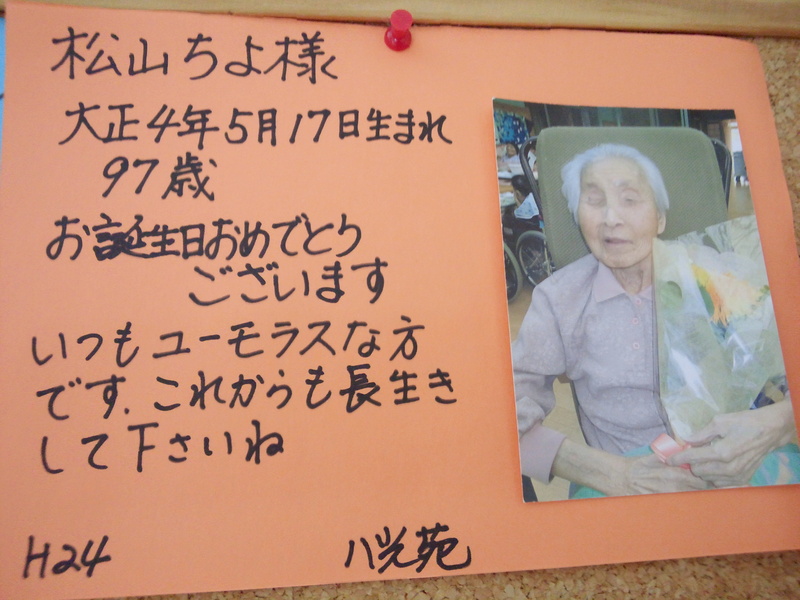 松山ちよ様
大正4年5月17日生まれ
97歳
お誕生日おめでとり
ございます
いつもユーモラスな方
です.これからも長生き
して下さいね
H24
八光苑